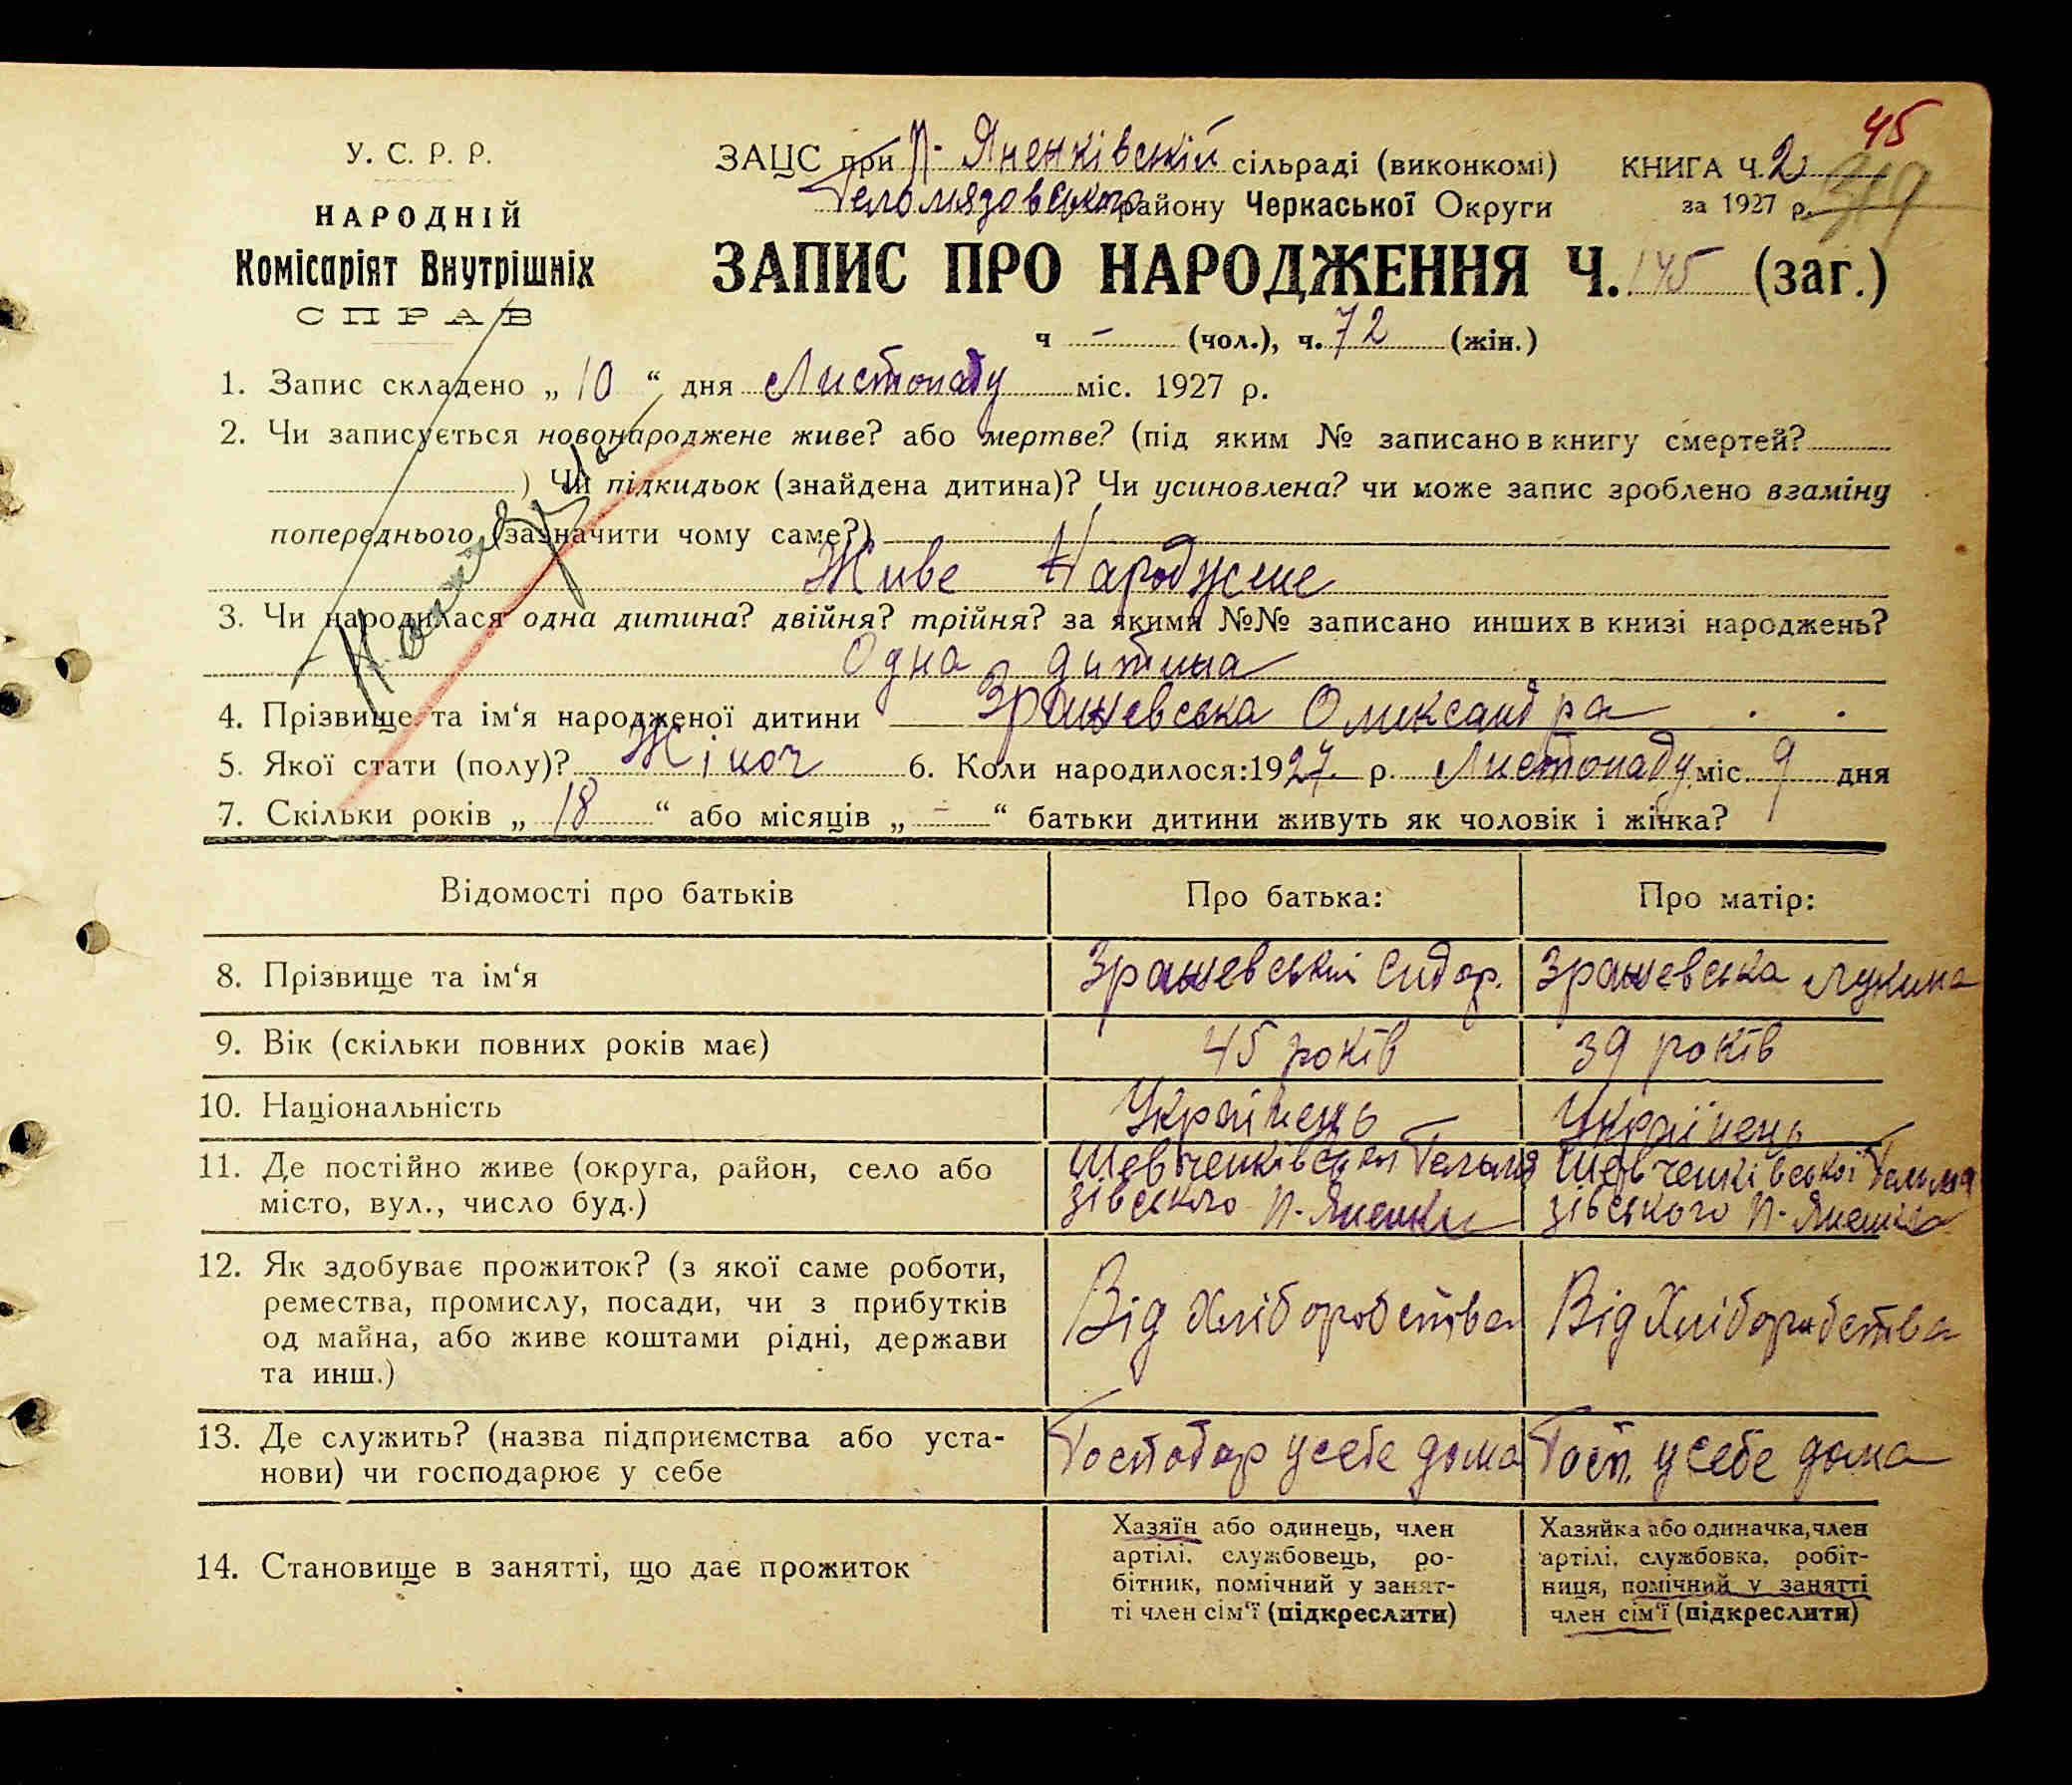 45
У. С. Р. Р.
НАРОДНІЙ
Комісаріят Внутрішніх
СПРАВ
ЗАЦС при П-Яненківській сільраді (виконкомі) КНИГА Ч. 2
району Черкаської Округи за 1927 р. 319
ЗАПИС ПРО НАРОДЖЕННЯ Ч. 145 (заг.)
ч - (чол.), ч. 72 (жін.)
1. Запис складено „ 10 “ дня Листопаду міс. 1927 р.
2. Чи записується новонароджене живе? або мертве? (під яким № записано в книгу смертей?
) Чи підкидьок (знайдена дитина)? Чи усиновлена? чи може запис зроблено взаміну
попереднього (зазначити чому саме?)
Живе Народжене
3. Чи народилася одна дитина? двійня? трійня? за якими №№ записано инших в книзі народжень?
Одна дитина
4. Прізвище та ім‘я народженої дитини Зражевська Олександра
5. Якої стати (полу)? Жіноч 6. Коли народилося: 1927 р. Листопаду міс. 9 дня
7. Скільки років „ 18 “ або місяців „ - “ батьки дитини живуть як чоловік і жінка?
Відомості про батьків Про батька: Про матір:
8. Прізвище та ім‘я Зражевський Сидор. Зражевська Лукина
9. Вік (скільки повних років має) 45 років 39 років
10. Національність Українець Українець
11. Де постійно живе (округа, район, село або Шевченківської Гельмя Шевченківської Гельмя
місто, вул., число буд.) зівського П-Яненки зівського П-Яненки
12. Як здобуває прожиток? (з якої саме роботи,
ремества, промислу, посади, чи з прибутків Від Хліборобства Від Хліборобства
од майна, або живе коштами рідні, держави
та инш.)
13. Де служить? (назва підприємства або уста- Господар у себе дома Госп. у себе дома
нови) чи господарює у себе
14. Становище в занятті, що дає прожиток
Хазяїн або одинець, член
артілі, службовець, ро-
бітник, помічний у занят-
ті член сім‘ї (підкреслити)
Хазяйка або одиначка, член
артілі, службовка, робіт-
ниця, помічний у занятті
член сім‘ї (підкреслити)